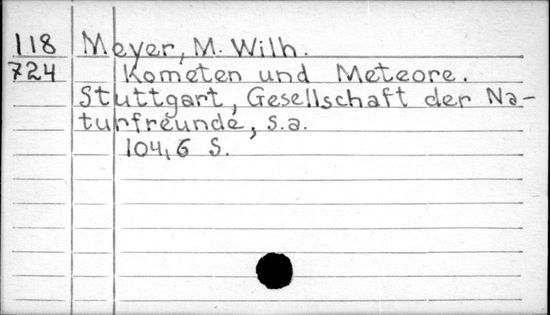 118 Meyer, M. Wilh.
724 Kometen und Meteore.
Stuttgart, Gesellschaft der Na-
turfreunde, s.a.
104,6 S.